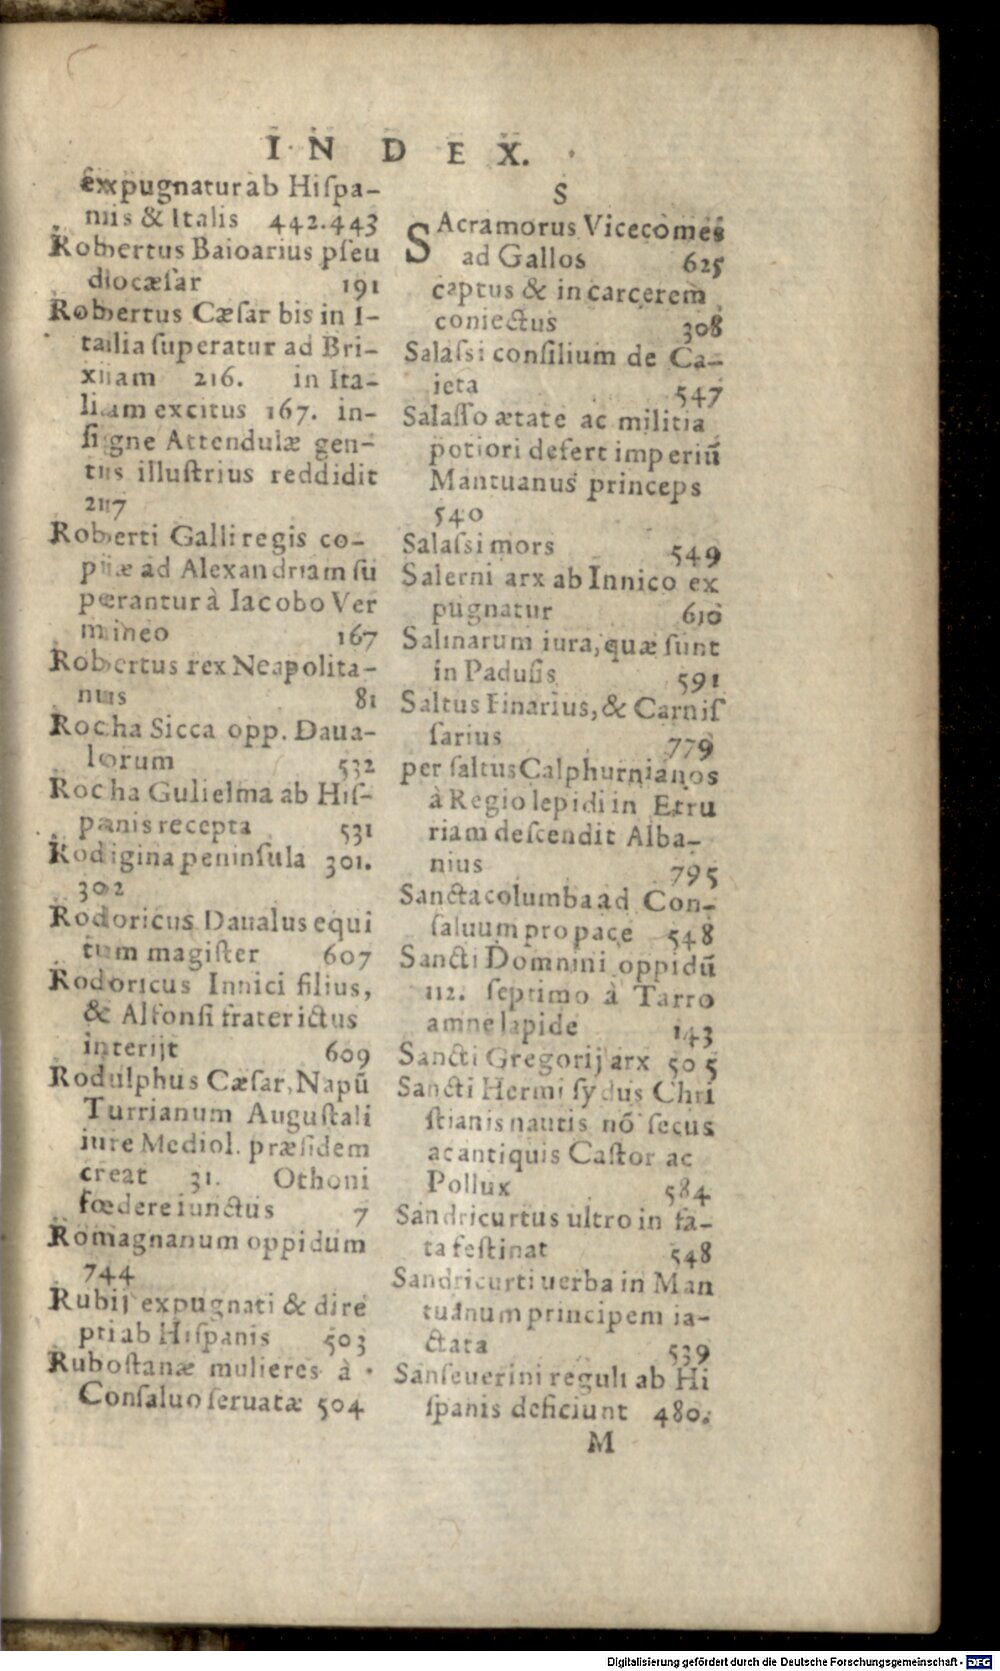 INDEX.
expugnatur ab Hiſpa-
niis & Italis 442.443
Robertus Baioarius pſeu
diocæſar 191
Robertus Cæſar bis in I-
talia ſuperatur ad Bri-
xiam 216. in Ita-
liam excitus 167. in-
ſigne Attendulæ gen-
tis illuſtrius reddidit
217
Roberti Galli regis co-
piæ ad Alexandriam ſu
perantur à Iacobo Ver
mineo 167
Robertus rex Neapolita-
nus 81
Rocha Sicca opp. Daua-
lorum 532
Rocha Gulielma ab Hiſ-
panis recepta 531
Rodigina peninſula 301.
302
Rodoricus Daualus equi
tum magiſter 607
Rodoricus Innici filius,
& Alfonſi frater ictus
interijt 609
Rodulphus Cæſar, Napũ
Turrianum Auguſtali
iure Mediol. præſidem
creat 31. Othoni
fœdere iunctus 7
Romagnanum oppidum
744
Rubij expugnati & dire
pti ab Hiſpanis 503
Ruboſtanæ mulieres à
Conſaluo ſeruatæ 504
S
SAcramorus Vicecomes
ad Gallos 625
captus & in carcerem
coniectus 308
Salaſsi conſilium de Ca-
ieta 547
Salaſſo ætate ac militia
potiori defert imperiũ
Mantuanus princeps
540
Salaſsi mors 549
Salerni arx ab Innico ex
pugnatur 610
Salinarum iura, quæ ſunt
in Paduſis 591
Saltus Finarius, & Carniſ
ſarius 779
per ſaltus Calphurnianos
à Regio lepidi in Etru
riam deſcendit Alba-
nius 795
Sancta columba ad Con-
ſaluum pro pace 548
Sancti Domnini oppidũ
112. ſeptimo à Tarro
amne lapide 143
Sancti Gregorij arx 505
Sancti Hermi ſydus Chri
ſtianis nautis nõ ſecus
ac antiquis Caſtor ac
Pollux 584
Sandricurtus ultro in fa-
ta feſtinat 548
Sandricurti uerba in Man
tuanum principem ia-
ctata 539
Sanſeuerini reguli ab Hi
ſpanis deficiunt 480.
M
Digitalisierung gefördert durch die Deutsche Forschungsgemeinschaft - DFG